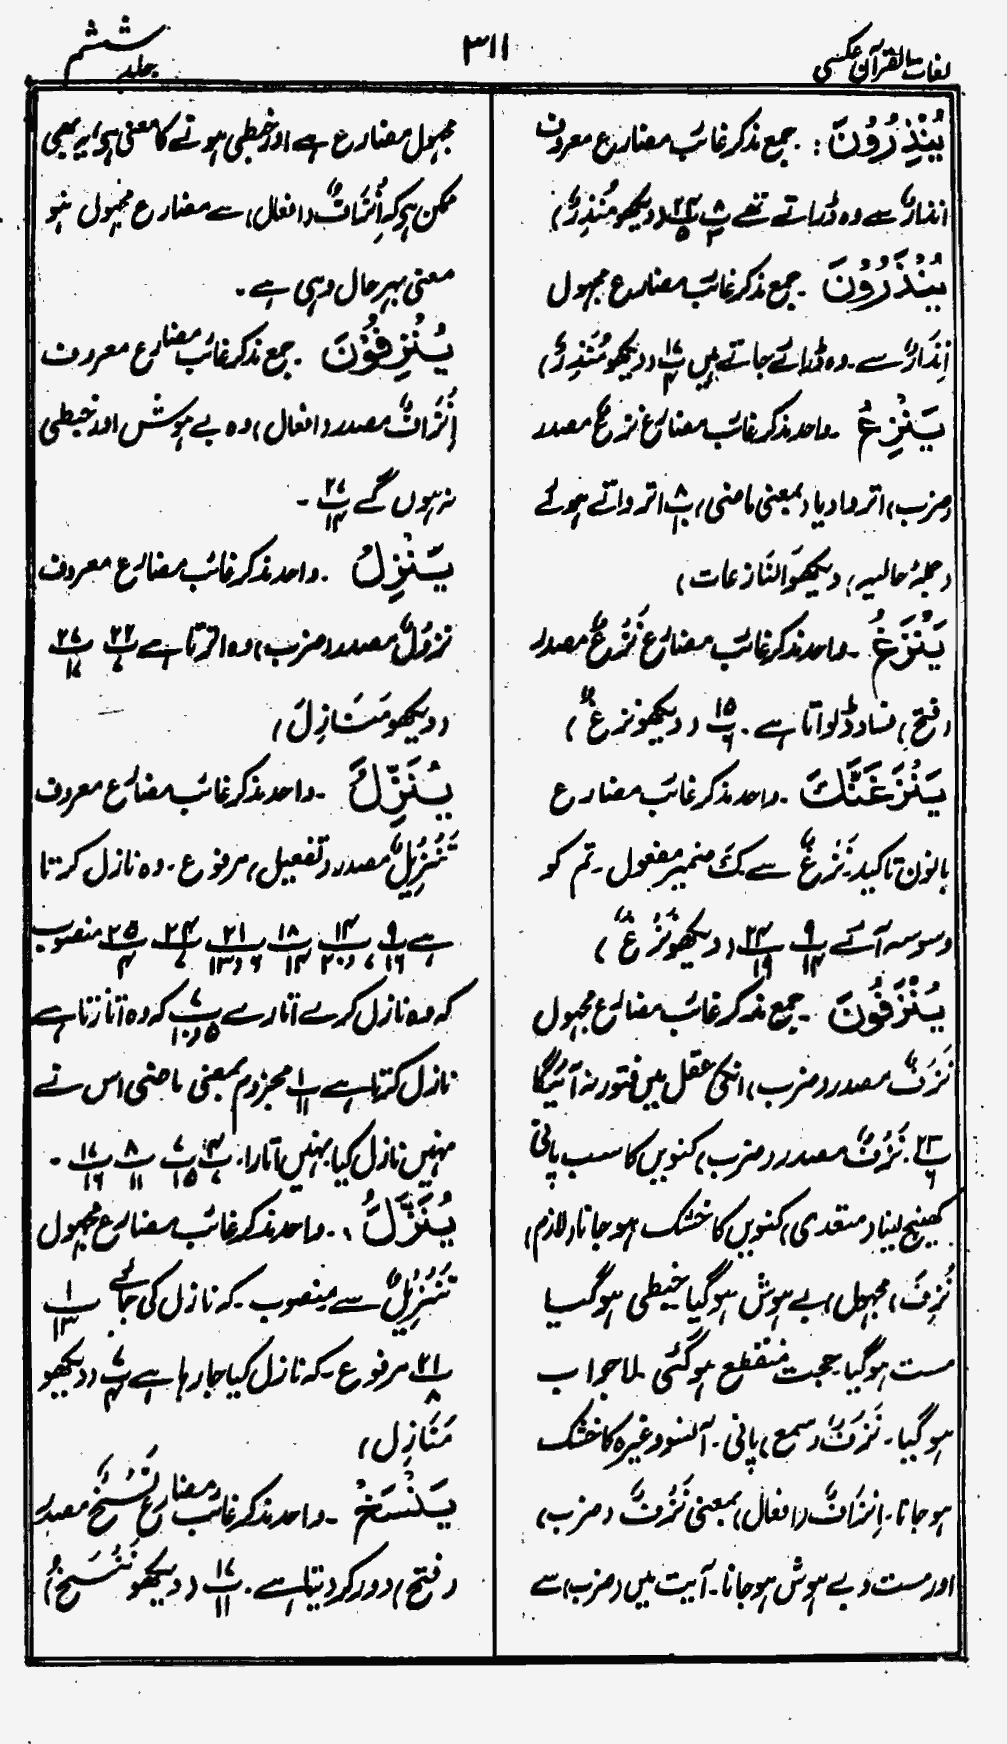 لغات القرآن عکسی
۳۱۱
جلد ششم
يُنْذِرُوْنَ: جمع مذکر غائب مضارع معروف
انذارٌ سے وہ ڈراتے تھے پ ۸/۲ پ ۲۴/۵ (دیکھو مُنْذِرٌ)
يُنْذَرُوْنَ۔ جمع مذکر غائب مضارع مجہول
اِنْذَارٌ سے۔ وہ ڈرائے جاتے ہیں پ ۱۷/۴ (دیکھو مُنْذِرٌ)
يَنْزِعُ۔ واحد مذکر غائب مضارع نزعٌ مصدر
(ضرب) اتروا دیا (بمعنی ماضی) پ ۸/۱۰ اترواتے ہوئے
(جملہ حالیہ) (دیکھو النَّازعات)
يَنْزَغُ۔ واحد مذکر غائب مضارع نَزْغٌ مصدر
(فتح) فساد ڈلواتا ہے۔ پ ۱۵/۶ (دیکھو نزغٌ)
يَنْزَغَنَّكَ۔ واحد مذکر غائب مضارع
بانون تاکید۔ نَزْغٌ سے کَ ضمیر مفعول۔ تم کو
وسوسہ آئے پ ۹/۱۴ پ ۲۴/۱۹ (دیکھو نَزْغٌ)
يُنْزَفُوْنَ۔ جمع مذکر غائب مضارع مجہول
نَزْفٌ مصدر (ضرب) انکی عقل میں فتور نہ آئیگا
پ ۲۳/۶۔ نَزْفٌ مصدر (ضرب) کنویں کا سب پانی
کھینچ لینا (متعدی) کنویں کا خشک ہو جانا (لازم)
نُزِفَ (مجہول) بے ہوش ہو گیا خبطی ہو گیا
مست ہو گیا۔ حجت منقطع ہو گئی۔ لاجواب
ہو گیا۔ نَزَفٌ (سمع) پانی۔ آنسو وغیرہ کا خشک
ہو جانا۔ اِنْزَافٌ (افعال) بمعنی نَزْفٌ (ضرب)
اور مست و بے ہوش ہو جانا۔ آیت میں (ضرب) سے
مجہول مضارع ہے اور خبطی ہونے کا معنی ہے، یہ بھی
ممکن ہے کہ اِنْزَافٌ (افعال) سے مضارع مجہول ہو
معنی بہرحال وہی ہے۔
يُنْزِفُوْنَ۔ جمع مذکر غائب مضارع معروف
اِنْزَافٌ مصدر (افعال) وہ بے ہوش اور خبطی
نہ ہوں گے پ ۲۷/۱۴۔
يَنْزِلُ۔ واحد مذکر غائب مضارع معروف
نزولٌ مصدر (ضرب) وہ اترتا ہے پ ۲۲/۷ پ ۲۷/۱۷
(دیکھو مَنَازِلَ)
يُنَزِّلُ۔ واحد مذکر غائب مضارع معروف
تَنْزِيْلٌ مصدر (تفعیل) مرفوع۔ وہ نازل کرتا
ہے پ ۹/۱۶ پ ۱۴/۷ و ۲۰ پ ۱۸/۱۲ پ ۲۱/۶ و ۱۳ پ ۲۴/۷ پ ۲۵/۴ منصوب
کہ وہ نازل کرے اتارے پ ۷/۵ و ۱۰ کہ وہ اتارتا ہے
نازل کرتا ہے پ ۱/۱۱ مجزوم بمعنی ماضی اس نے
نہیں نازل کیا نہیں اتارا۔ پ ۴/۷ پ ۷/۱۵ پ ۸/۱۱ پ ۱۷/۱۶۔
يُنَزَّلُ۔ واحد مذکر غائب مضارع مجہول
تَنْزِيْلٌ سے منصوب۔ کہ نازل کی جائے پ ۱/۱۳
پ ۲۱/۸ مرفوع۔ کہ نازل کیا جا رہا ہے پ ۷/۴ (دیکھو
مَنَازِل)
يَنْسَخُ۔ واحد مذکر غائب مضارع نَسْخٌ مصدر
(فتح) دور کر دیتا ہے۔ پ ۱۷/۱۱ (دیکھو نَنْسَخْ)